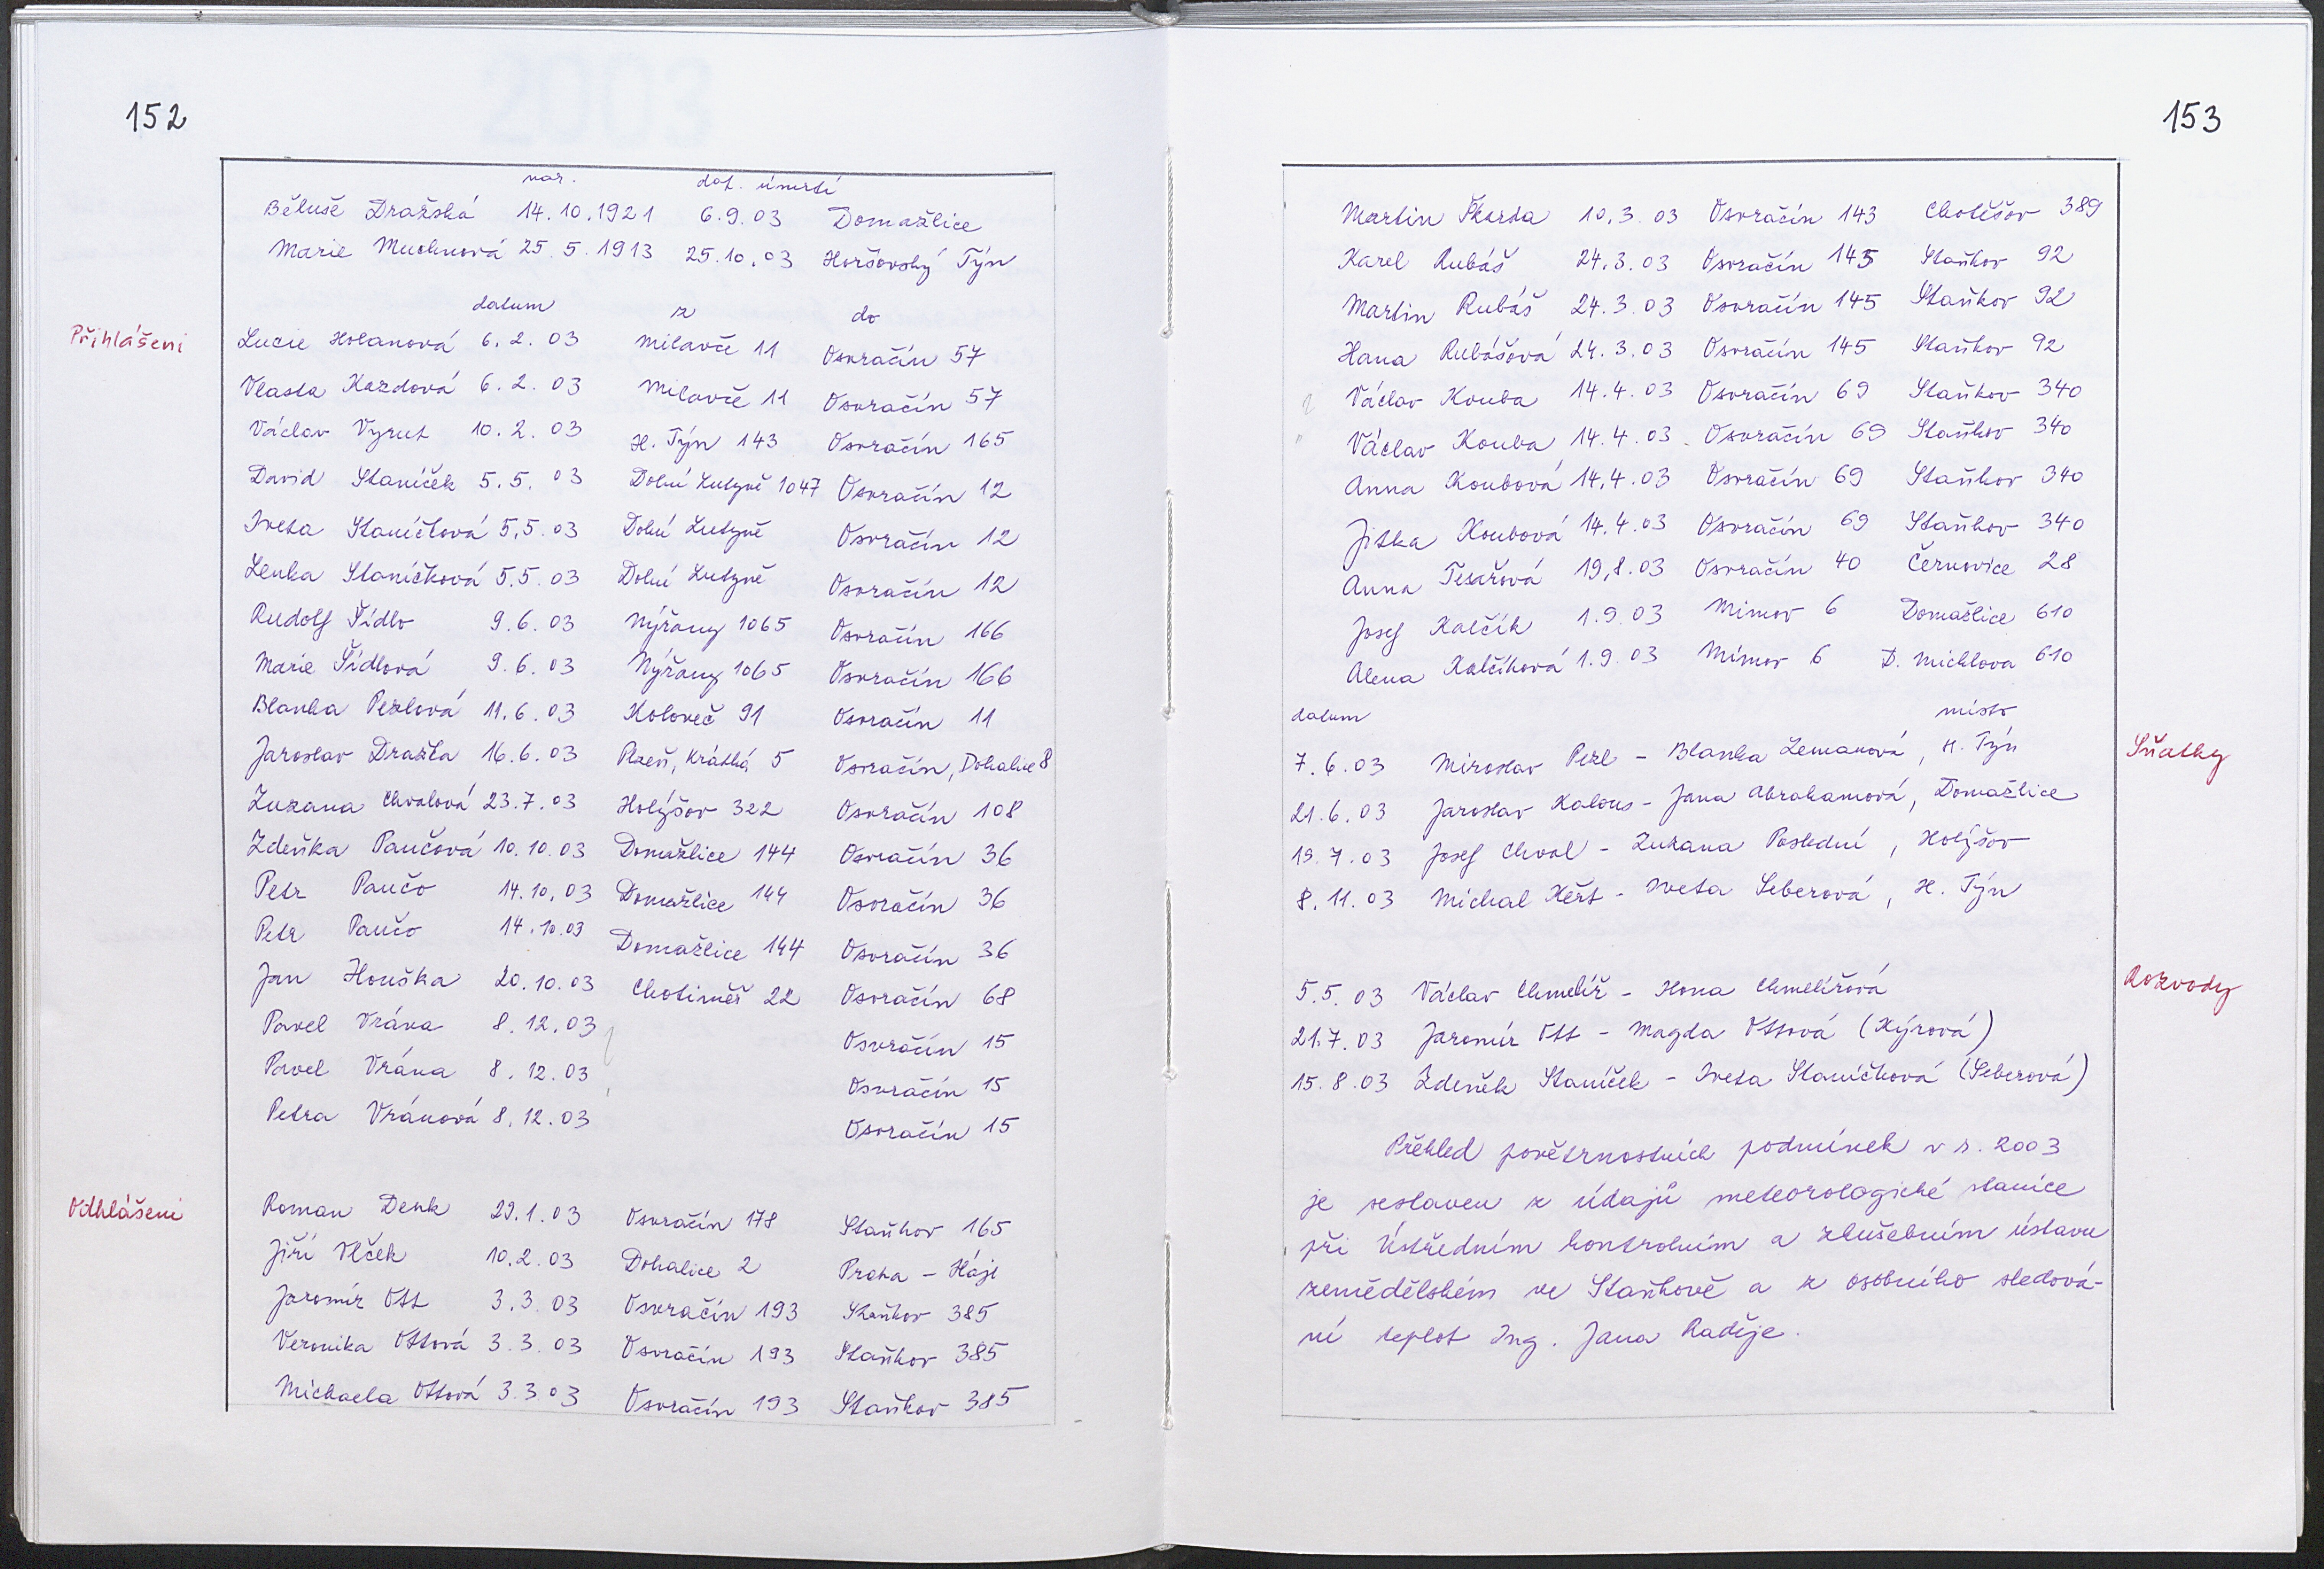 152
nar. dat. úmrtí
Běluše Dražská 14.10.1921 6.9.03 Domažlice
Marie Muchnová 25.5.1913 25.10.03 Horšovský Týn
datum z do
Přihlášeni
Lucie Holanová 6.2.03 Milavče 11 Osvračín 57
Vlasta Kazdová 6.2.03 Milavče 11 Osvračín 57
Václav Vyrut 10.2.03 H. Týn 143 Osvračín 165
David Staníček 5.5.03 Dolní Lutyně 1047 Osvračín 12
Iveta Staníčková 5.5.03 Dolní Lutyně Osvračín 12
Lenka Staníčková 5.5.03 Dolní Lutyně Osvračín 12
Rudolf Šídlo 9.6.03 Nýřany 1065 Osvračín 166
Marie Šídlová 9.6.03 Nýřany 1065 Osvračín 166
Blanka Pezlová 11.6.03 Koloveč 91 Osvračín 11
Jaroslav Dražka 16.6.03 Plzeň, Krátká 5 Osvračín, Dohalice 8
Zuzana Chvalová 23.7.03 Holýšov 322 Osvračín 108
Zdeňka Paučová 10.10.03 Domažlice 144 Osvračín 36
Petr Paučo 14.10.03 Domažlice 144 Osvračín 36
Petr Paučo 14.10.03 Domažlice 144 Osvračín 36
Jan Houška 20.10.03 Chotiměř 22 Osvračín 68
Pavel Vrána 8.12.03 Osvračín 15
Pavel Vrána 8.12.03 Osvračín 15
Petra Vránová 8.12.03 Osvračín 15
Odhlášeni
Roman Denk 29.1.03 Osvračín 178 Staňkov 165
Jiří Vlček 10.2.03 Dohalice 2 Praha - Háje
Jaromír Ott 3.3.03 Osvračín 193 Staňkov 385
Veronika Ottová 3.3.03 Osvračín 193 Staňkov 385
Michaela Ottová 3.3.03 Osvračín 193 Staňkov 385
153
Martin Škarda 10.3.03 Osvračín 143 Chotěšov 389
Karel Rubáš 24.3.03 Osvračín 145 Staňkov 92
Martin Rubáš 24.3.03 Osvračín 145 Staňkov 92
Hana Rubášová 24.3.03 Osvračín 145 Staňkov 92
Václav Kouba 14.4.03 Osvračín 69 Staňkov 340
Václav Kouba 14.4.03 Osvračín 69 Staňkov 340
Anna Koubová 14.4.03 Osvračín 69 Staňkov 340
Jitka Koubová 14.4.03 Osvračín 69 Staňkov 340
Anna Tesařová 19.8.03 Osvračín 40 Černovice 28
Josef Kalčík 1.9.03 Mimov 6 Domažlice 610
Alena Kalčíková 1.9.03 Mimov 6 D. Michlova 610
datum místo
Sňatky
7.6.03 Miroslav Pezl - Blanka Zemanová, H. Týn
21.6.03 Jaroslav Kalous - Jana Abrahamová, Domažlice
19.7.03 Josef Chval - Zuzana Poslední, Holýšov
8.11.03 Michal Keřt - Iveta Seberová, H. Týn
Rozvody
5.5.03 Václav Chmelíř - Hona Chmelířová
21.7.03 Jaromír Ott - Magda Ottová (Kýrová)
15.8.03 Zdeněk Staníček - Iveta Staníčková (Seberová)
Přehled povětrnostních podmínek v r. 2003
je sestaven z údajů meteorologické stanice
při Ústředním kontrolním a zkušebním ústavu
zemědělském ve Staňkově a z osobního sledová-
ní teplot Ing. Jana Raděje.